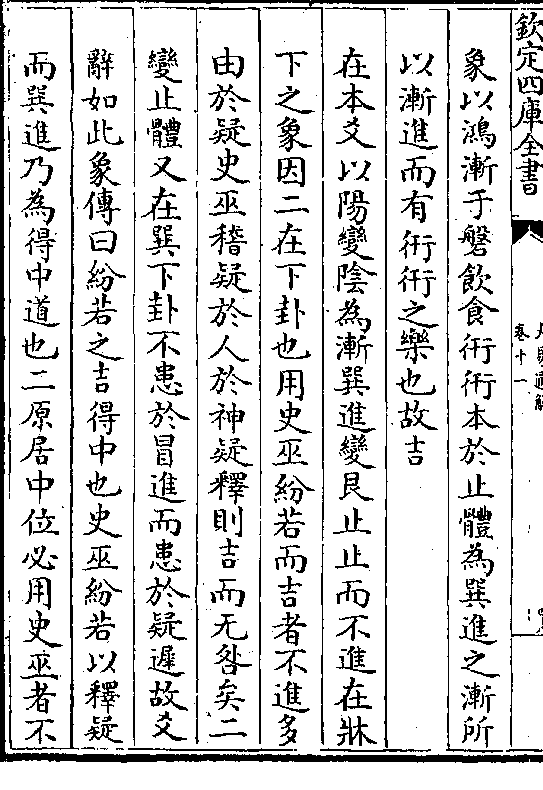 欽定四庫全書
卷十一
象以鴻漸于磐飲食衎衎本於止體為巽進之漸所
以漸進而有衎衎之樂也故吉
在本爻以陽變陰為漸巽進變艮止止而不進在牀
下之象因二在下卦也用史巫紛若而吉者不進多
由於疑史巫稽疑於人於神疑釋則吉而无咎矣二
變止體又在巽下卦不患於冒進而患於疑遲故爻
辭如此象傳曰紛若之吉得中也史巫紛若以釋疑
而巽進乃為得中道也二原居中位必用史巫者不